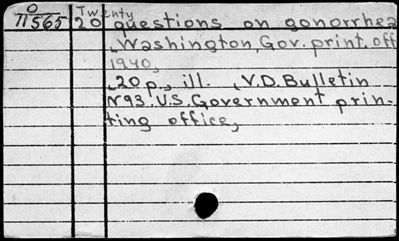 0
71565
Twenty
20 questions on gonorrhea
, Washington, Gov. print. off
1940,
, 20 p., ill. , V.D. Bulletin
N93. U.S. Government prin-
ting office,